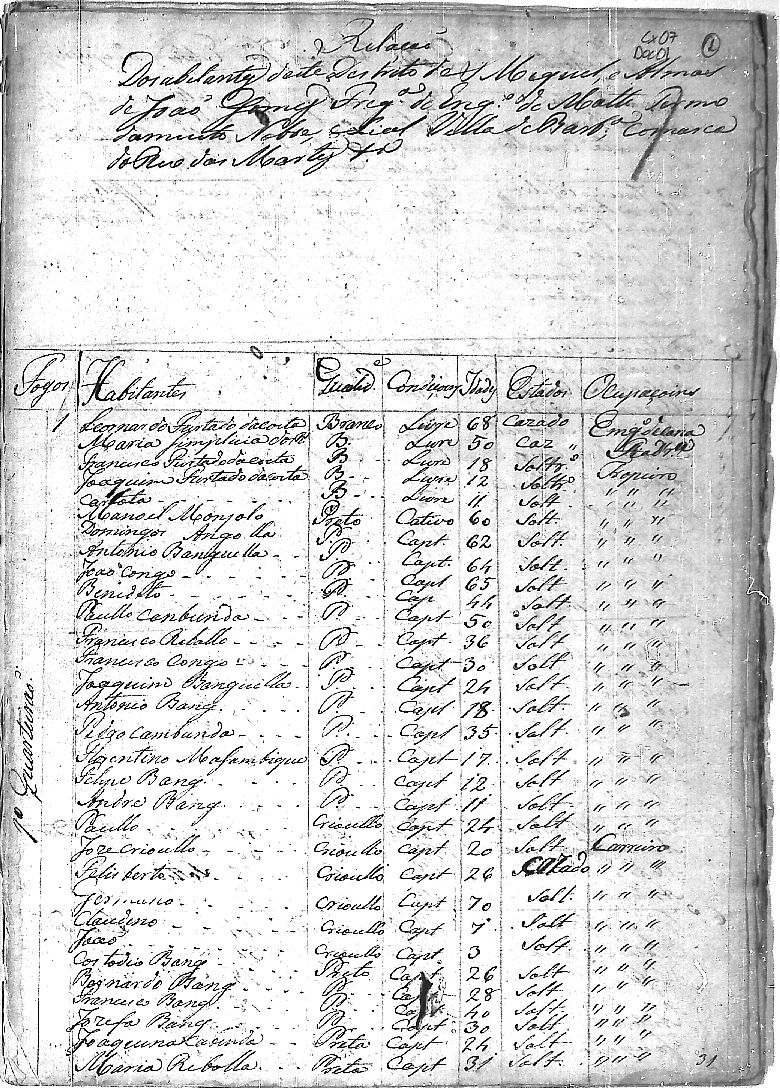 Cx07
Doc01
1
Relacaõ
Dos abitantes deste Destrito de S Miguel, e Almas
de Joaõ Gomes Freg.ª de Eng.º de Matto Termo
da muito Nobre, e Lial Villa de Barb.ª Comarca
do Rio das Mortes
Fogos Habitantes Qualid.e Condiçoẽs Idades Estados Ocupaçoins
1º Quarteiraõ
1 Leonardo Furtado da costa Branco Livre 68 Cazado Eng.º de cana
Maria Simplicia B Livre 50 Caz "
Francisco Furtado da costa B Livre 18 Soltr.º Tropeiro
Joaquim Furtado da costa B Livre 12 Soltr.º " " "
Carlota B Livre 11 Solt " " "
Manoel Monjolo Preto Cativo 60 Solt. " " "
Domingos Angolla P Capt 62 Solt. " " "
Antonio Banguella P Capt. 64 Solt. " " "
Joaõ Congo P Capt 65 Solt. " " "
Benedito P Cap 44 Solt " " "
Paullo Canbunda P Capt 50 Solt " " "
Francisco Rebollo P Capt. 36 Solt " " "
Francisco Congo P Capt 30 Solt " " "
Joaquim Banguella P Capt 24 Solt " " "
Antonio Bang P Capt 18 Solt " " "
Pedro Cambunda P Capt 35 Solt. " " "
Florentino Masambique P Capt 17 Solt " " "
Felipe Bang P Capt 12 Solt " " "
Andre Bang P Capt 11 Solt " " "
Paullo Crioullo Capt 24 Solt " " "
Joze Crioullo Crioullo Capt 20 Solt Carreiro
Felisberto Crioullo Capt 26 Cazado " " "
Germano Crioullo Capt 70 Solt. " " "
Claudino Crioullo Capt 7 Solt " " "
Joaõ Crioullo Capt. 3 Solt " " "
Costodio Bang Preto Capt 26 Solt " " "
Bernardo Bang P Capt 28 Solt " " "
Francisco Bang P Cap 40 Solt " " "
Jozefa Bang P Capt 30 Solt " " "
Joaquina Cabinda Preta Capt 24 Solt " " "
Maria Rebolla Preta Capt 31 Solt. " " "
31